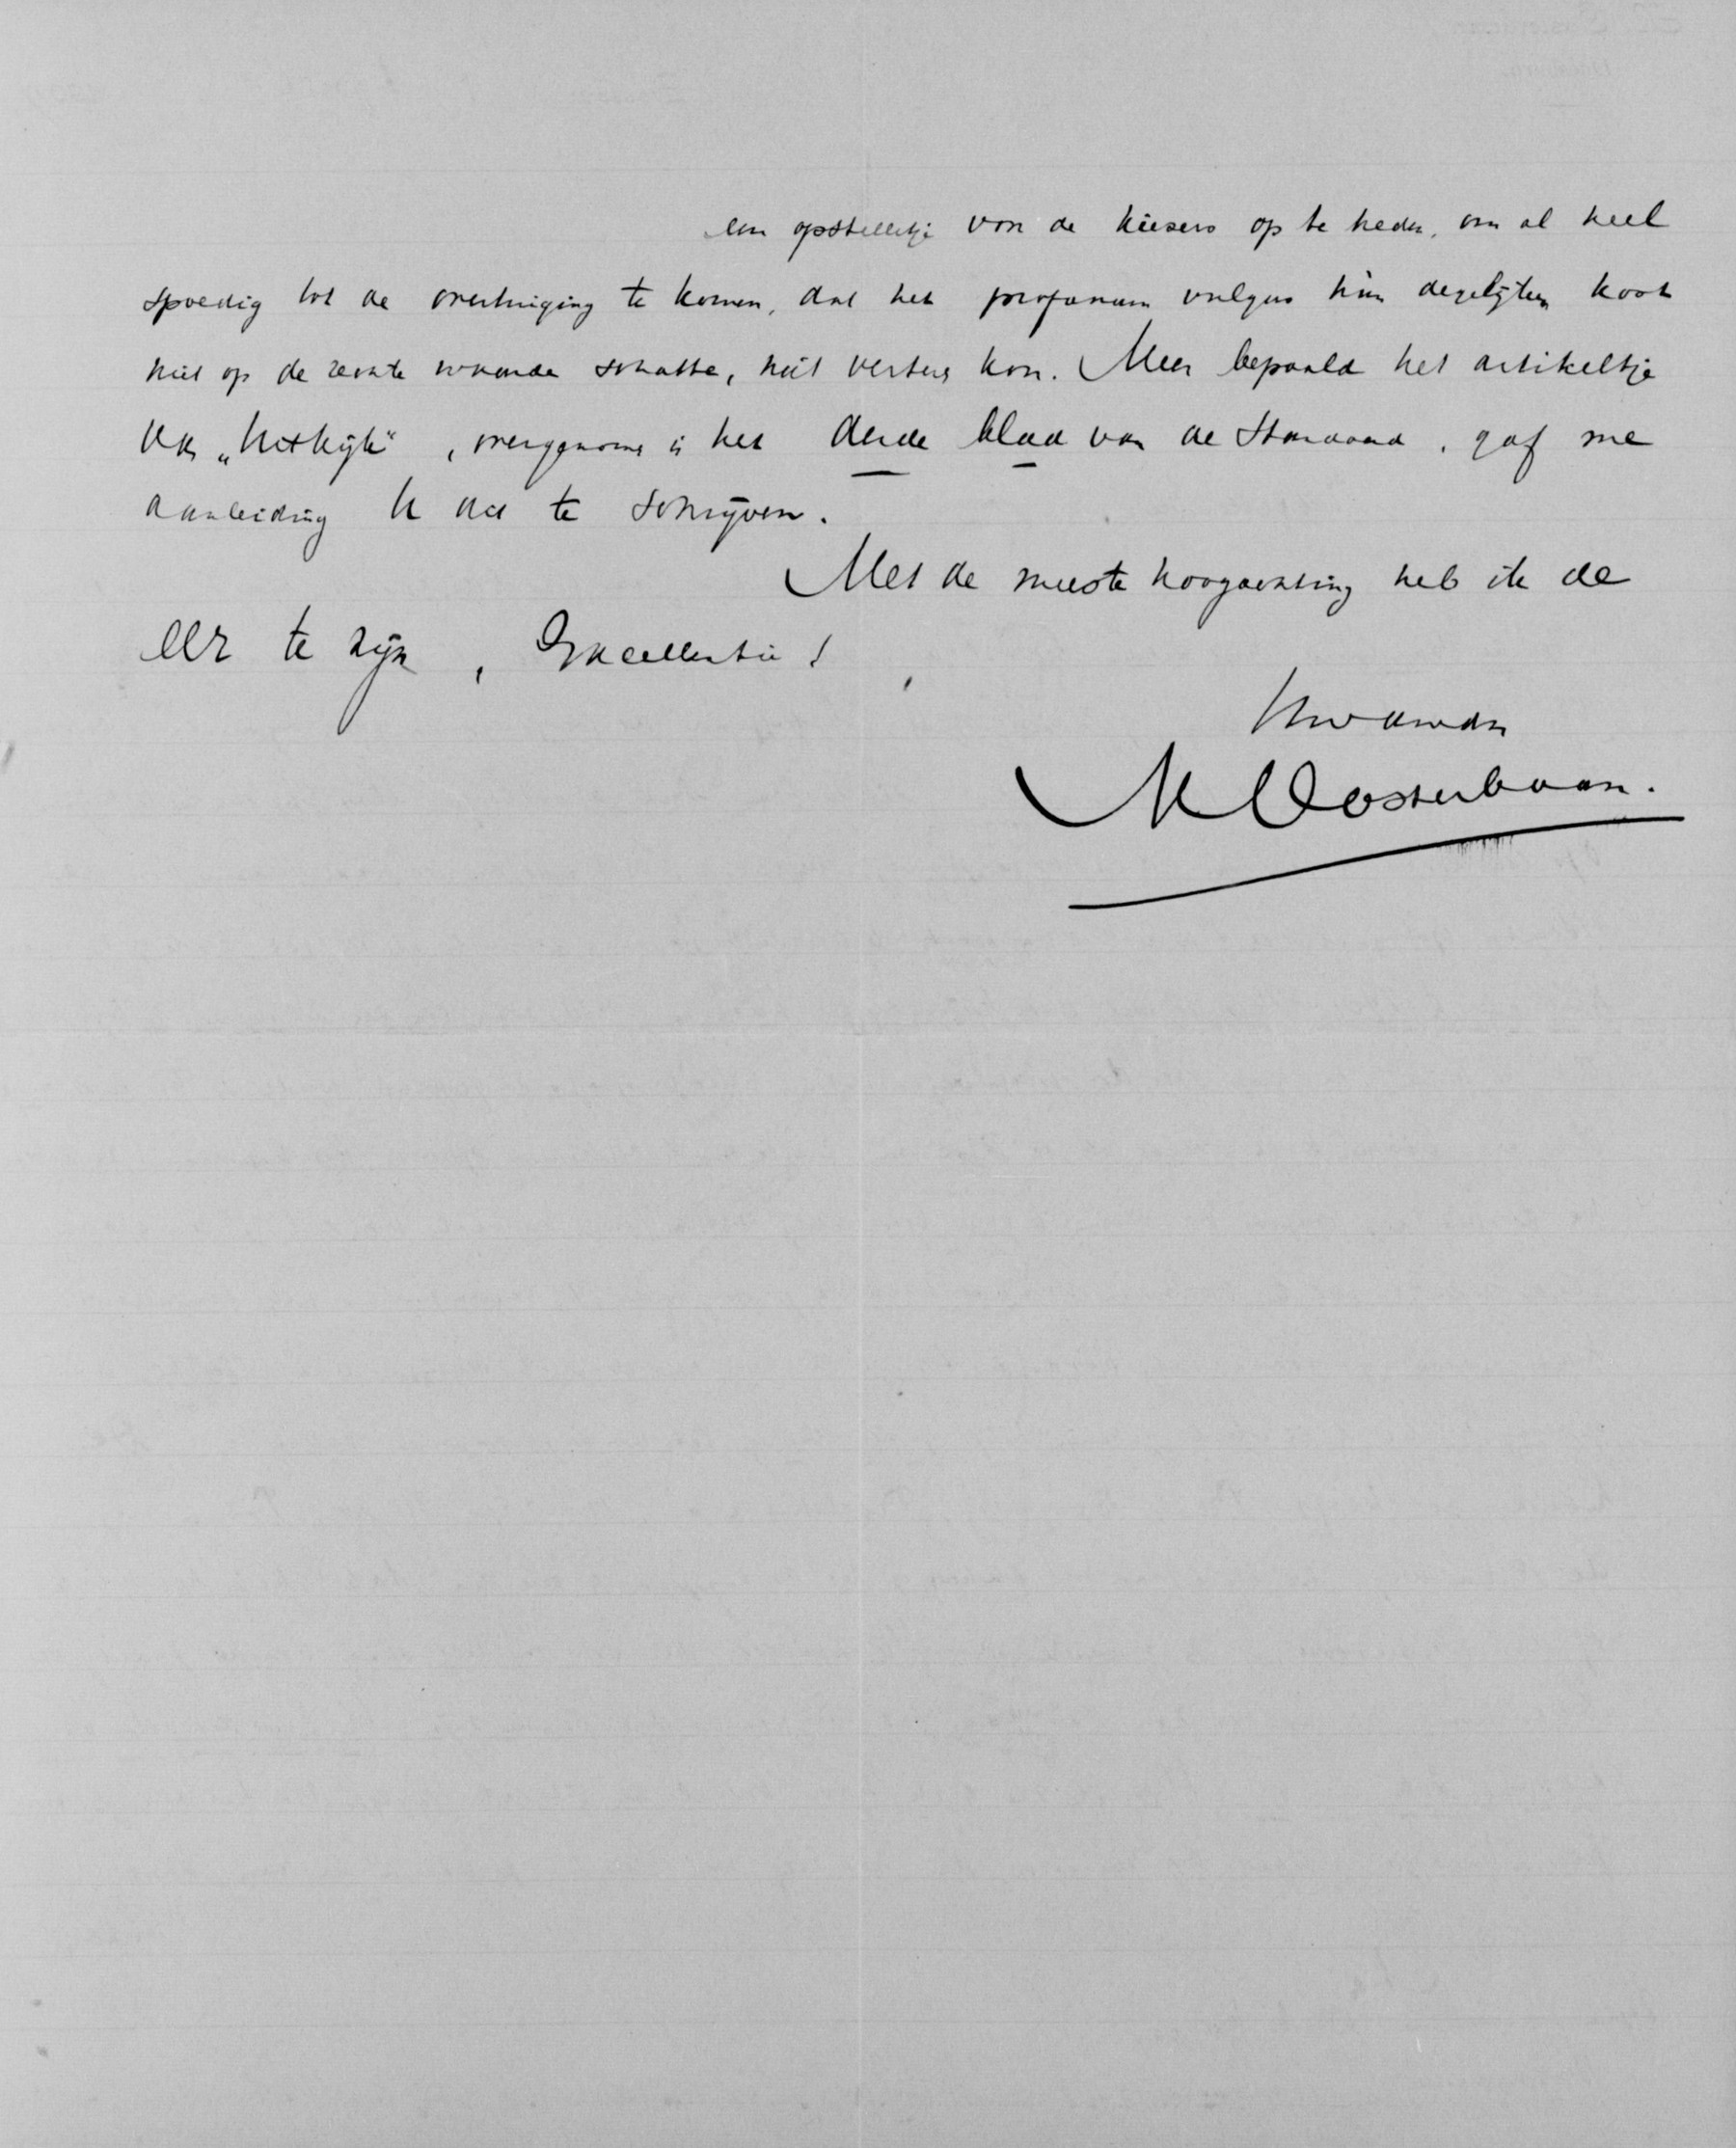 een opstelletje van de kiezers op te heden, om al heel
spoedig tot de overtuiging te komen, dat het profanum vulgus hùn degelijken kost
niet op de rechte waarde schatte, niet verteren kon. Meer bepaald het artikeltje
van „Uitkijk“, overgenomen in het derde blad van de Standaard, gaf me
aanleiding U dit te schrijven.
Met de meeste hoogachting heb ik de
eer te zijn, Excellentie!
Uw dw. dr.
M Oosterbaan.